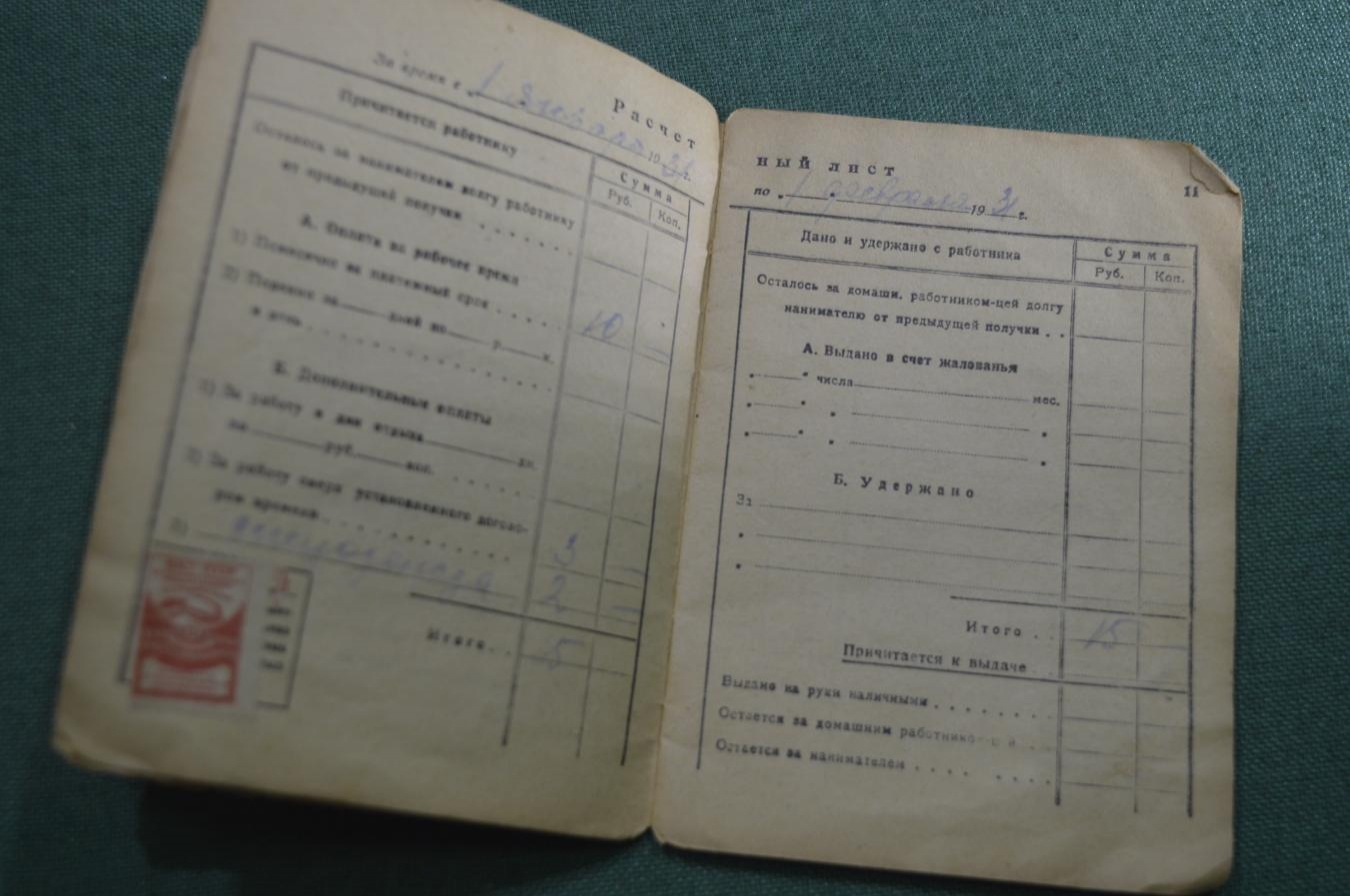 Расчет
За время с „ 1 Января 1931 г.
Причитается работнику
Сумма
Руб. Коп.
Осталось за нанимателем долгу работнику
от предыдущей получки
А. Оплата за рабочее время
1) Помесячно за платежный срок 10 —
2) Поденно за дней по р. к.
в день
Б. Дополнительные оплаты
1) За работу в дни отдыха дн.
по руб. коп.
2) За работу сверх установленного догово-
ром времени 3 —
3) 2 —
Итого 5
ный лист
11
по „ 1 февраля 1931 г.
Дано и удержано с работника
Сумма
Руб. Коп.
Осталось за домашн. работником-цей долгу
нанимателю от предыдущей получки . .
А. Выдано в счет жалованья
„ “ числа мес.
Б. Удержано
За
Итого . . 15 —
Причитается к выдаче
Выдано на руки наличными
Остается за домашним работником-цей
Остается за нанимателем